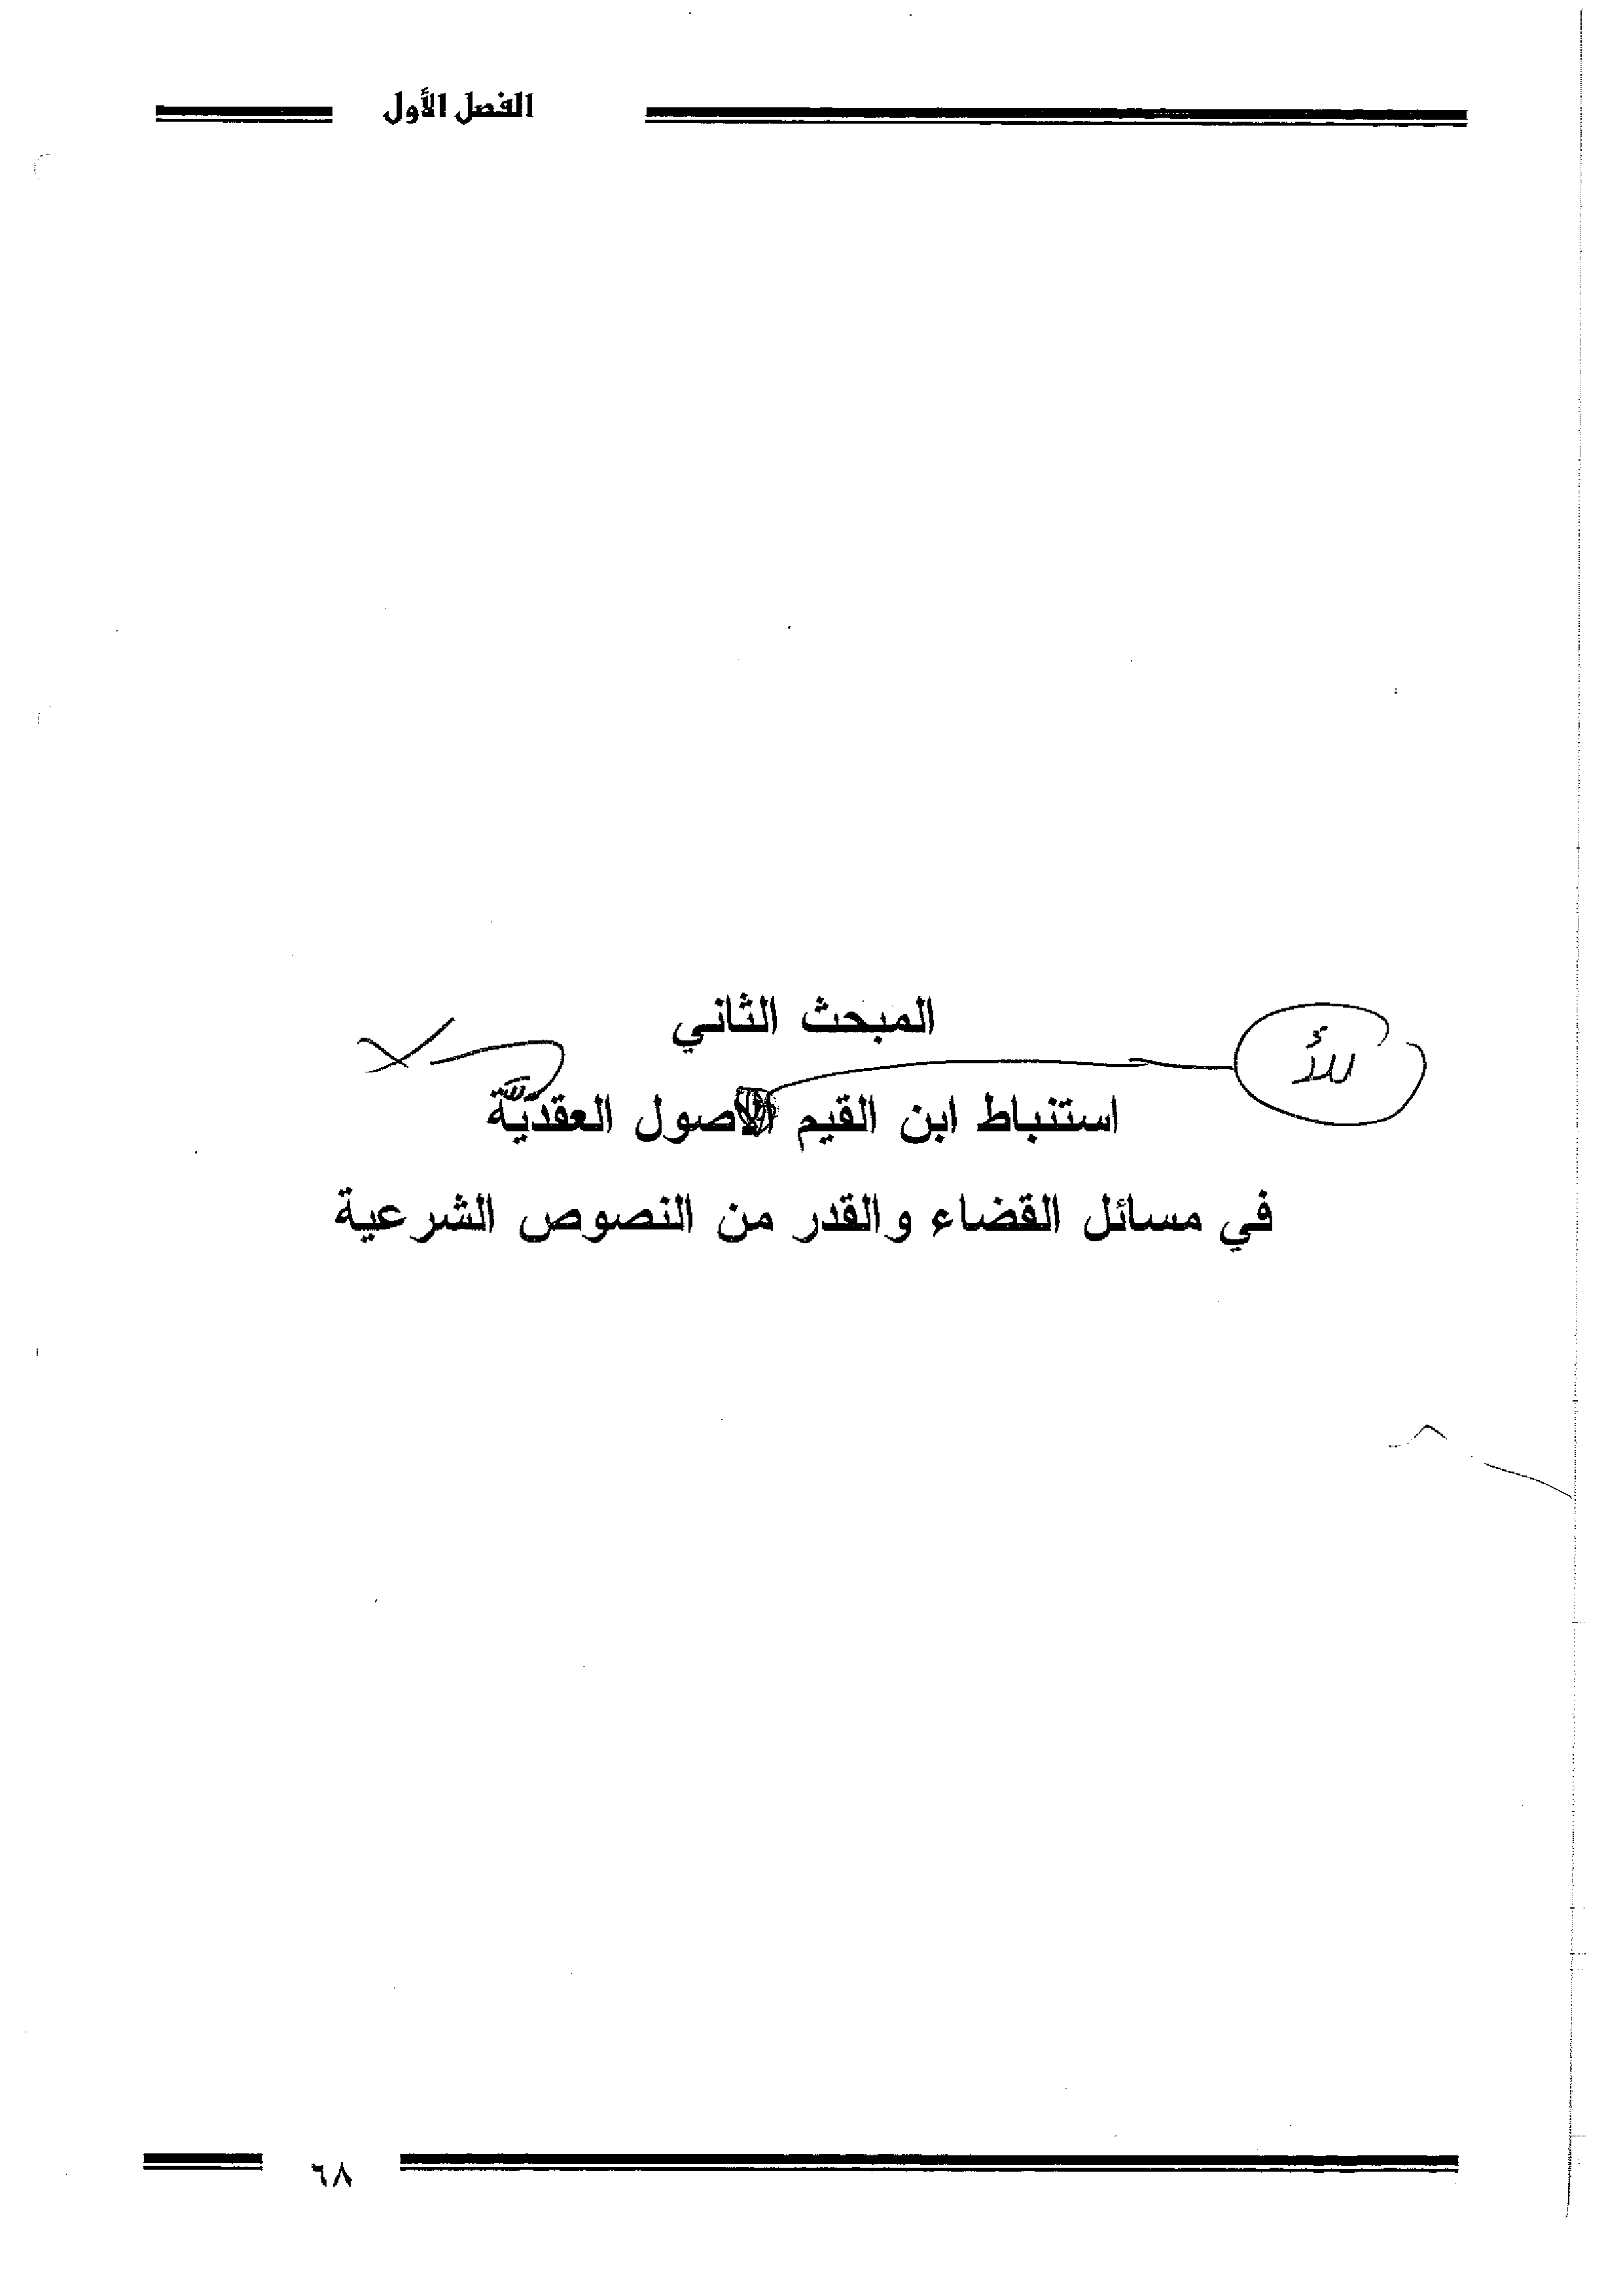 الفصل الأول
المبحث الثاني
للأ
استنباط ابن القيم الاصول العقديَّة
في مسائل القضاء والقدر من النصوص الشرعية
٦٨